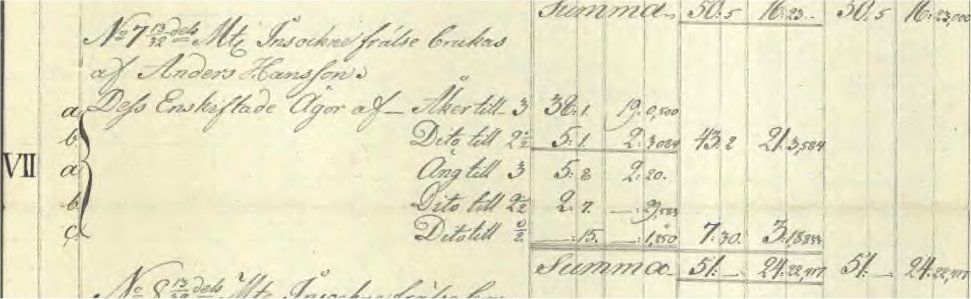 Summa 50.5 16:23.. 50.5 16:23,000
No 7 13/32 dels Mt. Insockne frälse brukas
af Anders Hansson.
a, Dess Enskiftade Ägor af Åker till 3 38.1. 19:0,500
b, Dito till 2½ 5.1. 2:3,084 43.2 21:3,584
VII a, Äng till 3 5.8 2:20.
b, Dito till 2½ 2.7.
c, Dito till 15. 1,250 7:30.
Summa 51. 24:22,417 51. 24:22,417
No 8 13/32 dels Mt. Insockne frälse